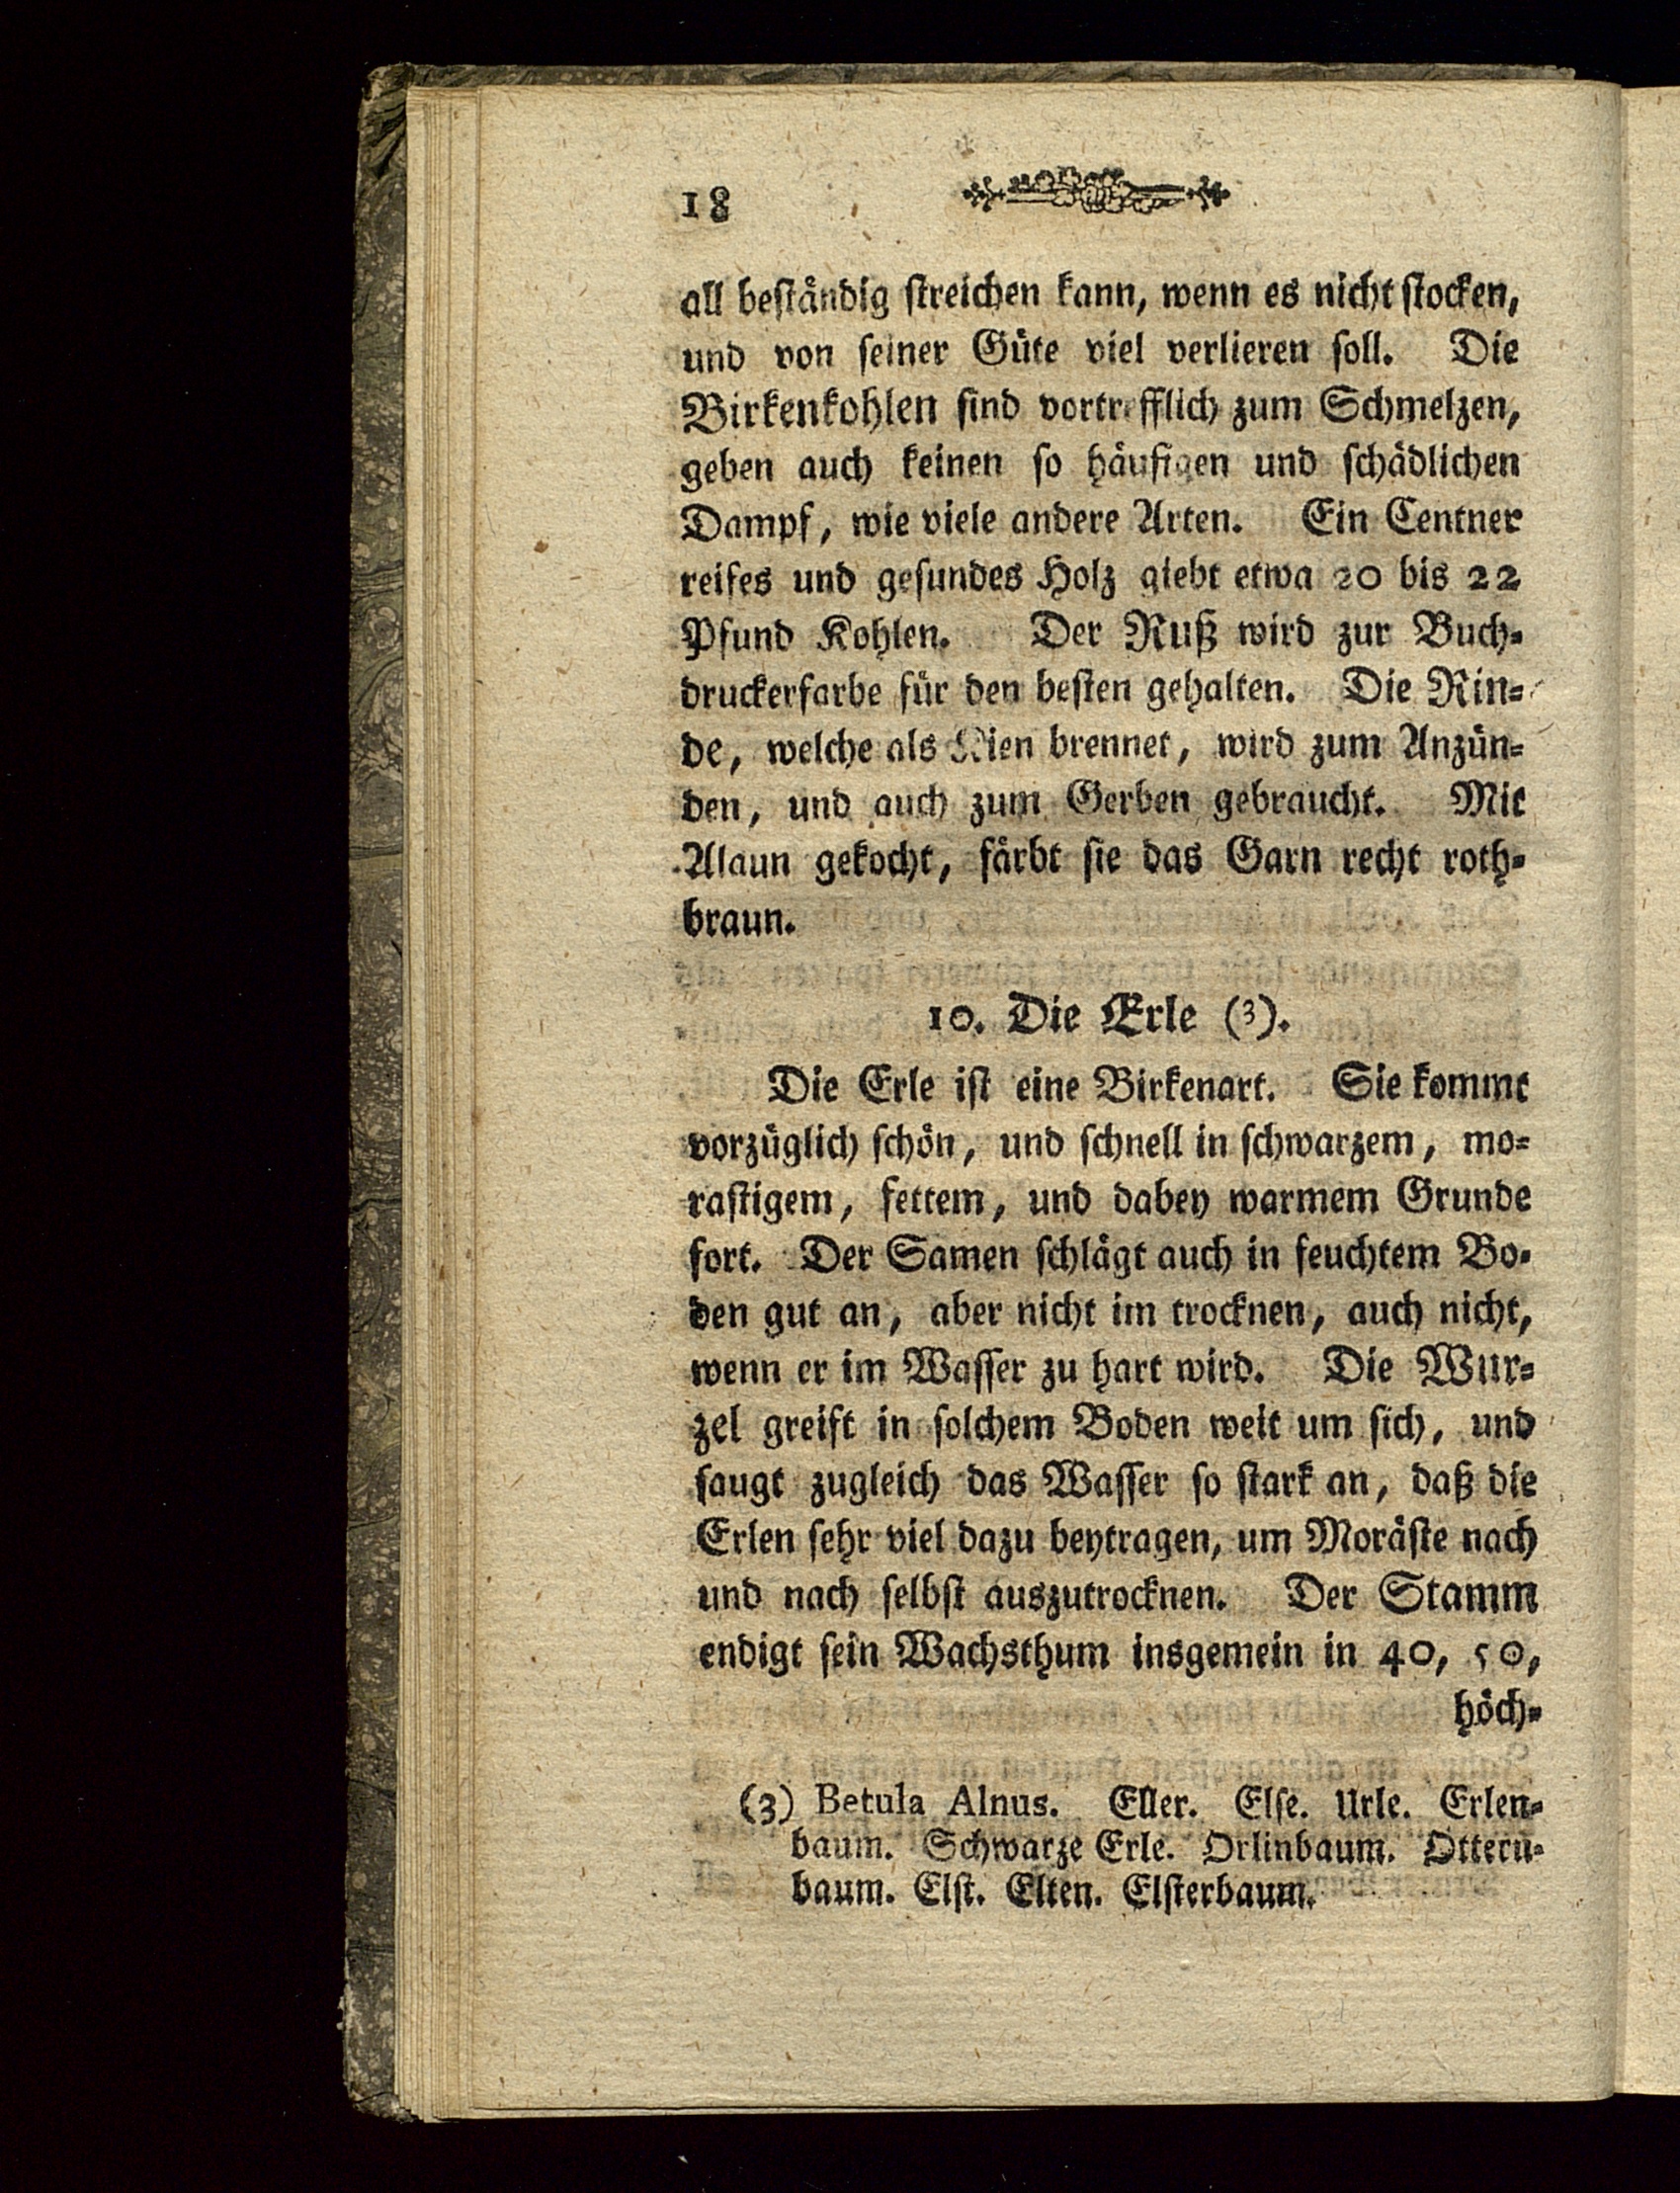 18
all beständig streichen kann, wenn es nicht stocken,
und von seiner Güte viel verlieren soll. Die
Birkenkohlen sind vortrefflich zum Schmelzen,
geben auch keinen so häufigen und schädlichen
Dampf, wie viele andere Arten. Ein Centner
reifes und gesundes Holz giebt etwa 20 bis 22
Pfund Kohlen. Der Ruß wird zur Buch-
druckerfarbe für den besten gehalten. Die Rin-
de, welche als Kien brennet, wird zum Anzün-
den, und auch zum Gerben gebraucht. Mit
Alaun gekocht, färbt sie das Garn recht roth-
braun.
10. Die Erle (3).
Die Erle ist eine Birkenart. Sie kommt
vorzüglich schön, und schnell in schwarzem, mo-
rastigem, fettem, und dabey warmem Grunde
fort. Der Samen schlägt auch in feuchtem Bo-
den gut an, aber nicht im trocknen, auch nicht,
wenn er im Wasser zu hart wird. Die Wur-
zel greift in solchem Boden weit um sich, und
saugt zugleich das Wasser so stark an, daß die
Erlen sehr viel dazu beytragen, um Moräste nach
und nach selbst auszutrocknen. Der Stamm
endigt sein Wachsthum insgemein in 40, 50,
höch-
(3) Betula Alnus. Eller. Else. Urle. Erlen-
baum. Schwarze Erle. Orlinbaum. Ottern-
baum. Elst. Elten. Elsterbaum.